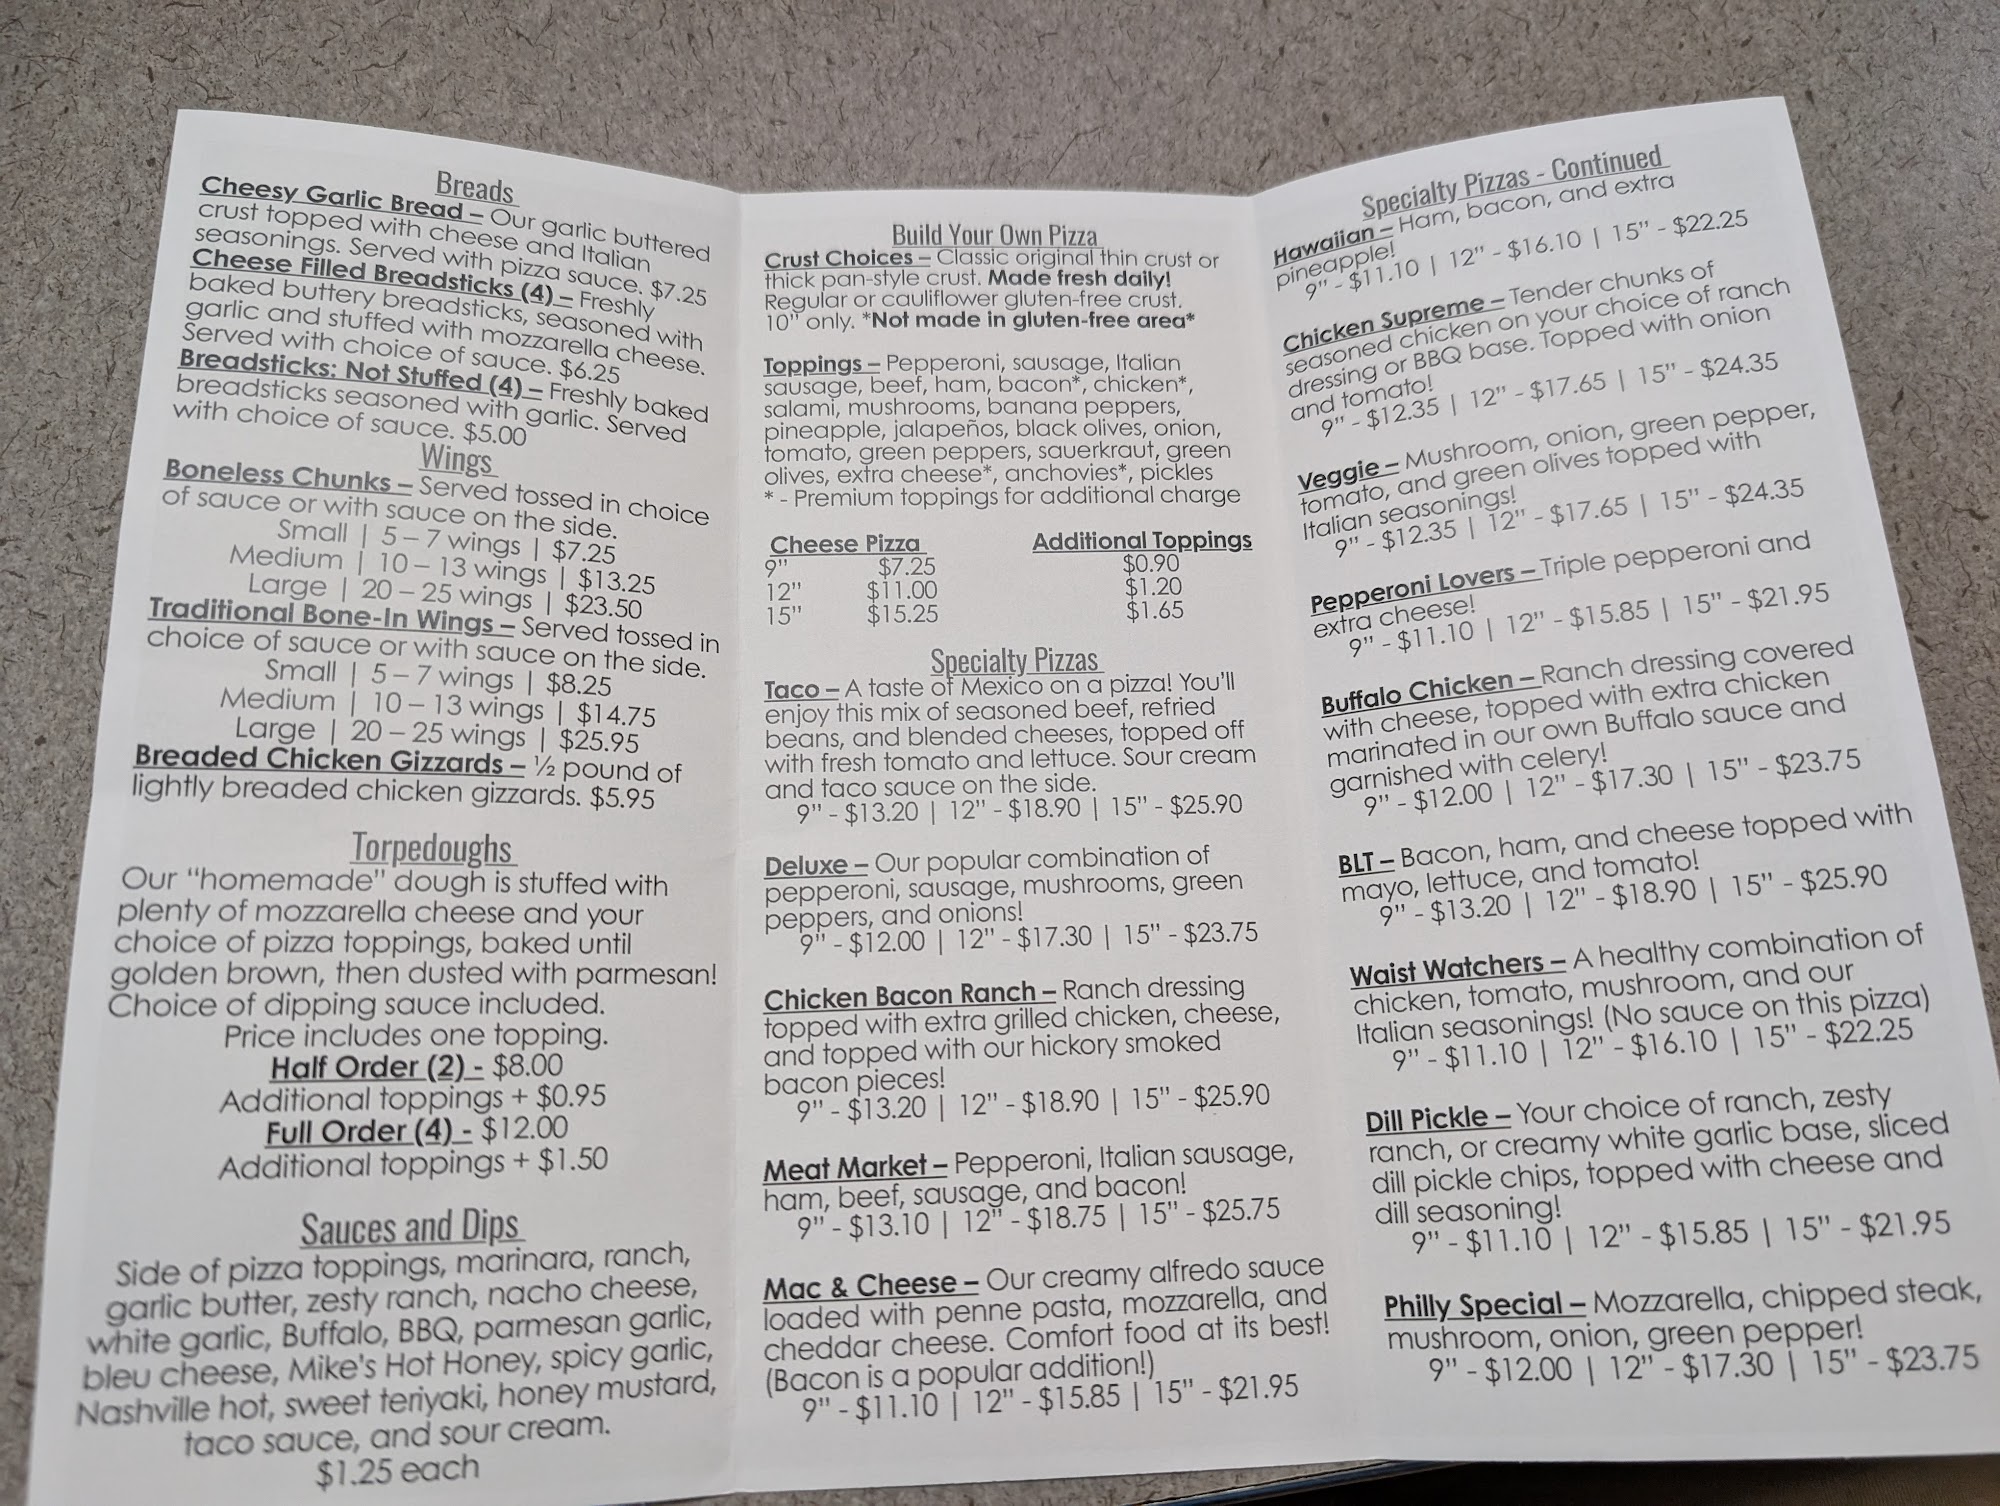 Breads
Cheesy Garlic Bread – Our garlic buttered
crust topped with cheese and Italian
seasonings. Served with pizza sauce. $7.25
Cheese Filled Breadsticks (4) – Freshly
baked buttery breadsticks, seasoned with
garlic and stuffed with mozzarella cheese.
Served with choice of sauce. $6.25
Breadsticks: Not Stuffed (4) – Freshly baked
breadsticks seasoned with garlic. Served
with choice of sauce. $5.00
Wings
Boneless Chunks – Served tossed in choice
of sauce or with sauce on the side.
Small | 5 – 7 wings | $7.25
Medium | 10 – 13 wings | $13.25
Large | 20 – 25 wings | $23.50
Traditional Bone-In Wings – Served tossed in
choice of sauce or with sauce on the side.
Small | 5 – 7 wings | $8.25
Medium | 10 – 13 wings | $14.75
Large | 20 – 25 wings | $25.95
Breaded Chicken Gizzards – ½ pound of
lightly breaded chicken gizzards. $5.95
Torpedoughs
Our "homemade" dough is stuffed with
plenty of mozzarella cheese and your
choice of pizza toppings, baked until
golden brown, then dusted with parmesan!
Choice of dipping sauce included.
Price includes one topping.
Half Order (2) - $8.00
Additional toppings + $0.95
Full Order (4) - $12.00
Additional toppings + $1.50
Sauces and Dips
Side of pizza toppings, marinara, ranch,
garlic butter, zesty ranch, nacho cheese,
white garlic, Buffalo, BBQ, parmesan garlic,
bleu cheese, Mike's Hot Honey, spicy garlic,
Nashville hot, sweet teriyaki, honey mustard,
taco sauce, and sour cream.
$1.25 each
Build Your Own Pizza
Crust Choices – Classic original thin crust or
thick pan-style crust. Made fresh daily!
Regular or cauliflower gluten-free crust.
10" only. *Not made in gluten-free area*
Toppings – Pepperoni, sausage, Italian
sausage, beef, ham, bacon*, chicken*,
salami, mushrooms, banana peppers,
pineapple, jalapeños, black olives, onion,
tomato, green peppers, sauerkraut, green
olives, extra cheese*, anchovies*, pickles
* - Premium toppings for additional charge
Cheese Pizza Additional Toppings
9" $7.25 $0.90
12" $11.00 $1.20
15" $15.25 $1.65
Specialty Pizzas
Taco – A taste of Mexico on a pizza! You'll
enjoy this mix of seasoned beef, refried
beans, and blended cheeses, topped off
with fresh tomato and lettuce. Sour cream
and taco sauce on the side.
9" - $13.20 | 12" - $18.90 | 15" - $25.90
Deluxe – Our popular combination of
pepperoni, sausage, mushrooms, green
peppers, and onions!
9" - $12.00 | 12" - $17.30 | 15" - $23.75
Chicken Bacon Ranch – Ranch dressing
topped with extra grilled chicken, cheese,
and topped with our hickory smoked
bacon pieces!
9" - $13.20 | 12" - $18.90 | 15" - $25.90
Meat Market – Pepperoni, Italian sausage,
ham, beef, sausage, and bacon!
9" - $13.10 | 12" - $18.75 | 15" - $25.75
Mac & Cheese – Our creamy alfredo sauce
loaded with penne pasta, mozzarella, and
cheddar cheese. Comfort food at its best!
(Bacon is a popular addition!)
9" - $11.10 | 12" - $15.85 | 15" - $21.95
Specialty Pizzas - Continued
Hawaiian – Ham, bacon, and extra
pineapple!
9" - $11.10 | 12" - $16.10 | 15" - $22.25
Chicken Supreme – Tender chunks of
seasoned chicken on your choice of ranch
dressing or BBQ base. Topped with onion
and tomato!
9" - $12.35 | 12" - $17.65 | 15" - $24.35
Veggie – Mushroom, onion, green pepper,
tomato, and green olives topped with
Italian seasonings!
9" - $12.35 | 12" - $17.65 | 15" - $24.35
Pepperoni Lovers – Triple pepperoni and
extra cheese!
9" - $11.10 | 12" - $15.85 | 15" - $21.95
Buffalo Chicken – Ranch dressing covered
with cheese, topped with extra chicken
marinated in our own Buffalo sauce and
garnished with celery!
9" - $12.00 | 12" - $17.30 | 15" - $23.75
BLT – Bacon, ham, and cheese topped with
mayo, lettuce, and tomato!
9" - $13.20 | 12" - $18.90 | 15" - $25.90
Waist Watchers – A healthy combination of
chicken, tomato, mushroom, and our
Italian seasonings! (No sauce on this pizza)
9" - $11.10 | 12" - $16.10 | 15" - $22.25
Dill Pickle – Your choice of ranch, zesty
ranch, or creamy white garlic base, sliced
dill pickle chips, topped with cheese and
dill seasoning!
9" - $11.10 | 12" - $15.85 | 15" - $21.95
Philly Special – Mozzarella, chipped steak,
mushroom, onion, green pepper!
9" - $12.00 | 12" - $17.30 | 15" - $23.75